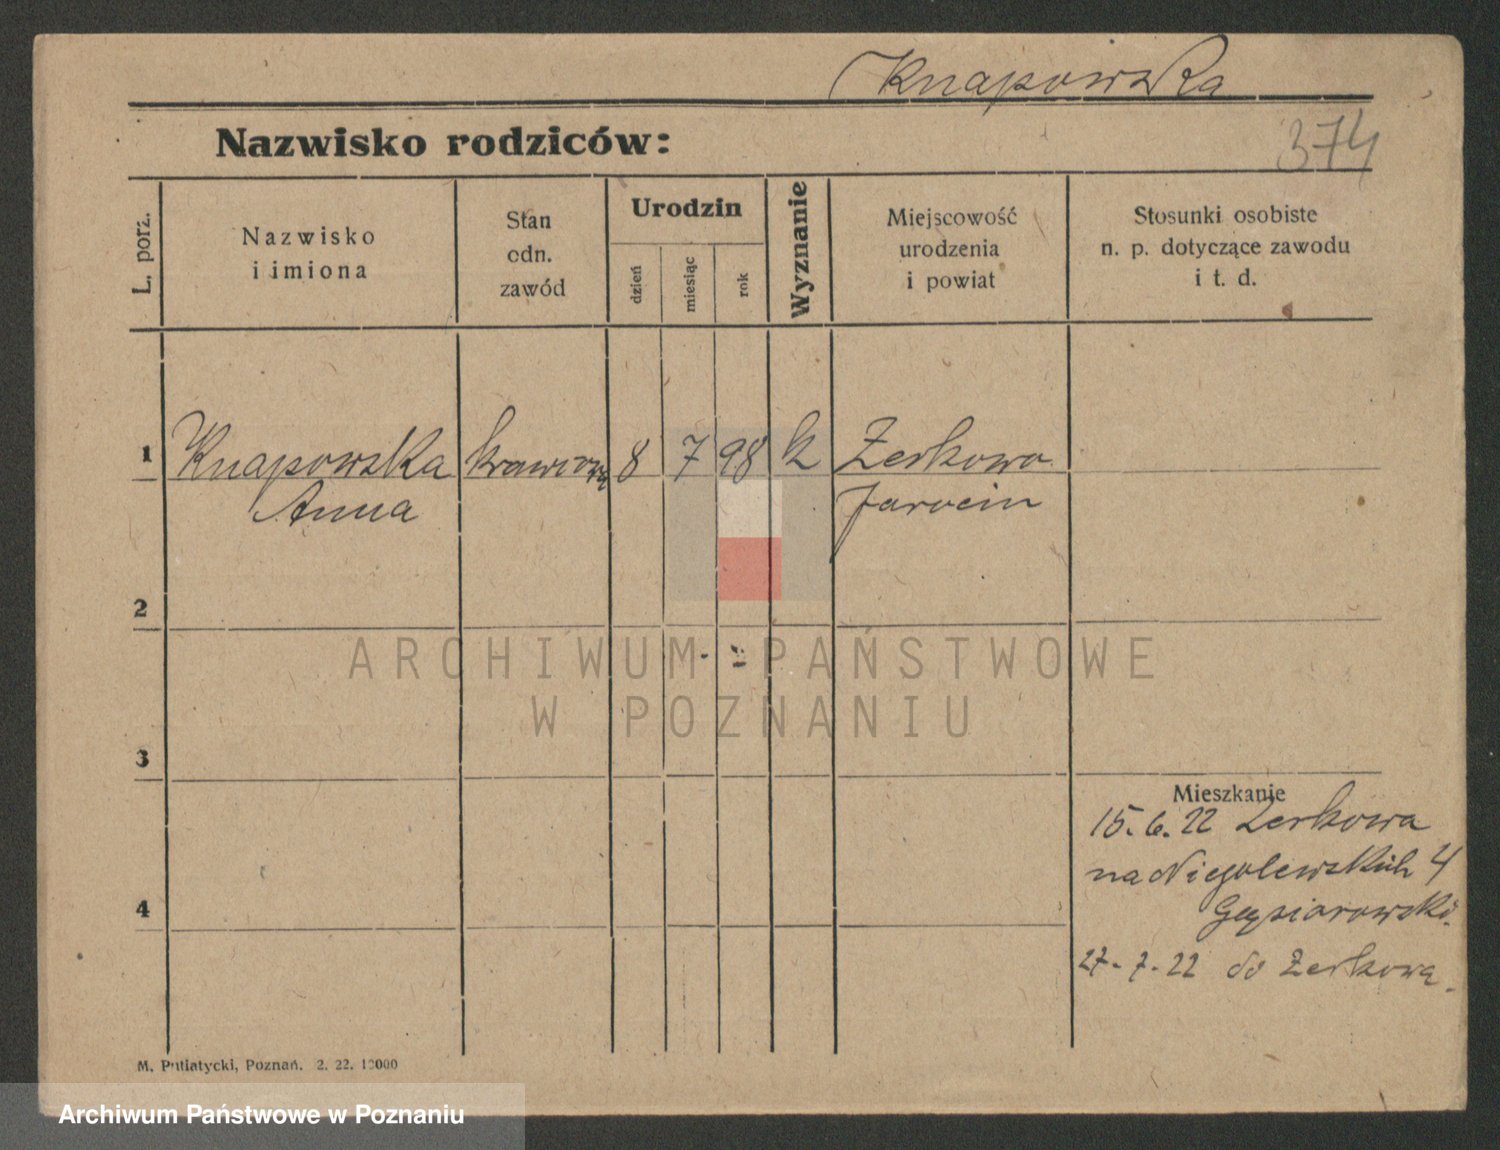 Knapowska
Nazwisko rodziców:
374
L. porz.
Nazwisko
i imiona
Stan
odn.
zawód
Urodzin
dzień
miesiąc
rok
Wyznanie
Miejscowość
urodzenia
i powiat
Stosunki osobiste
n. p. dotyczące zawodu
i t. d.
1 Knapowska 8 7 98 k Zerkowo
Anna Jarocin
2
ARCHIWUM PAŃSTWOWE
W POZNANIU
3
Mieszkanie
15. 6. 22 Zerkowa
na Niegolewskich 4
4
27-7-22 do Zerkowa.
M. Putiatycki, Poznań. 2. 22. 10000
Archiwum Państwowe w Poznaniu